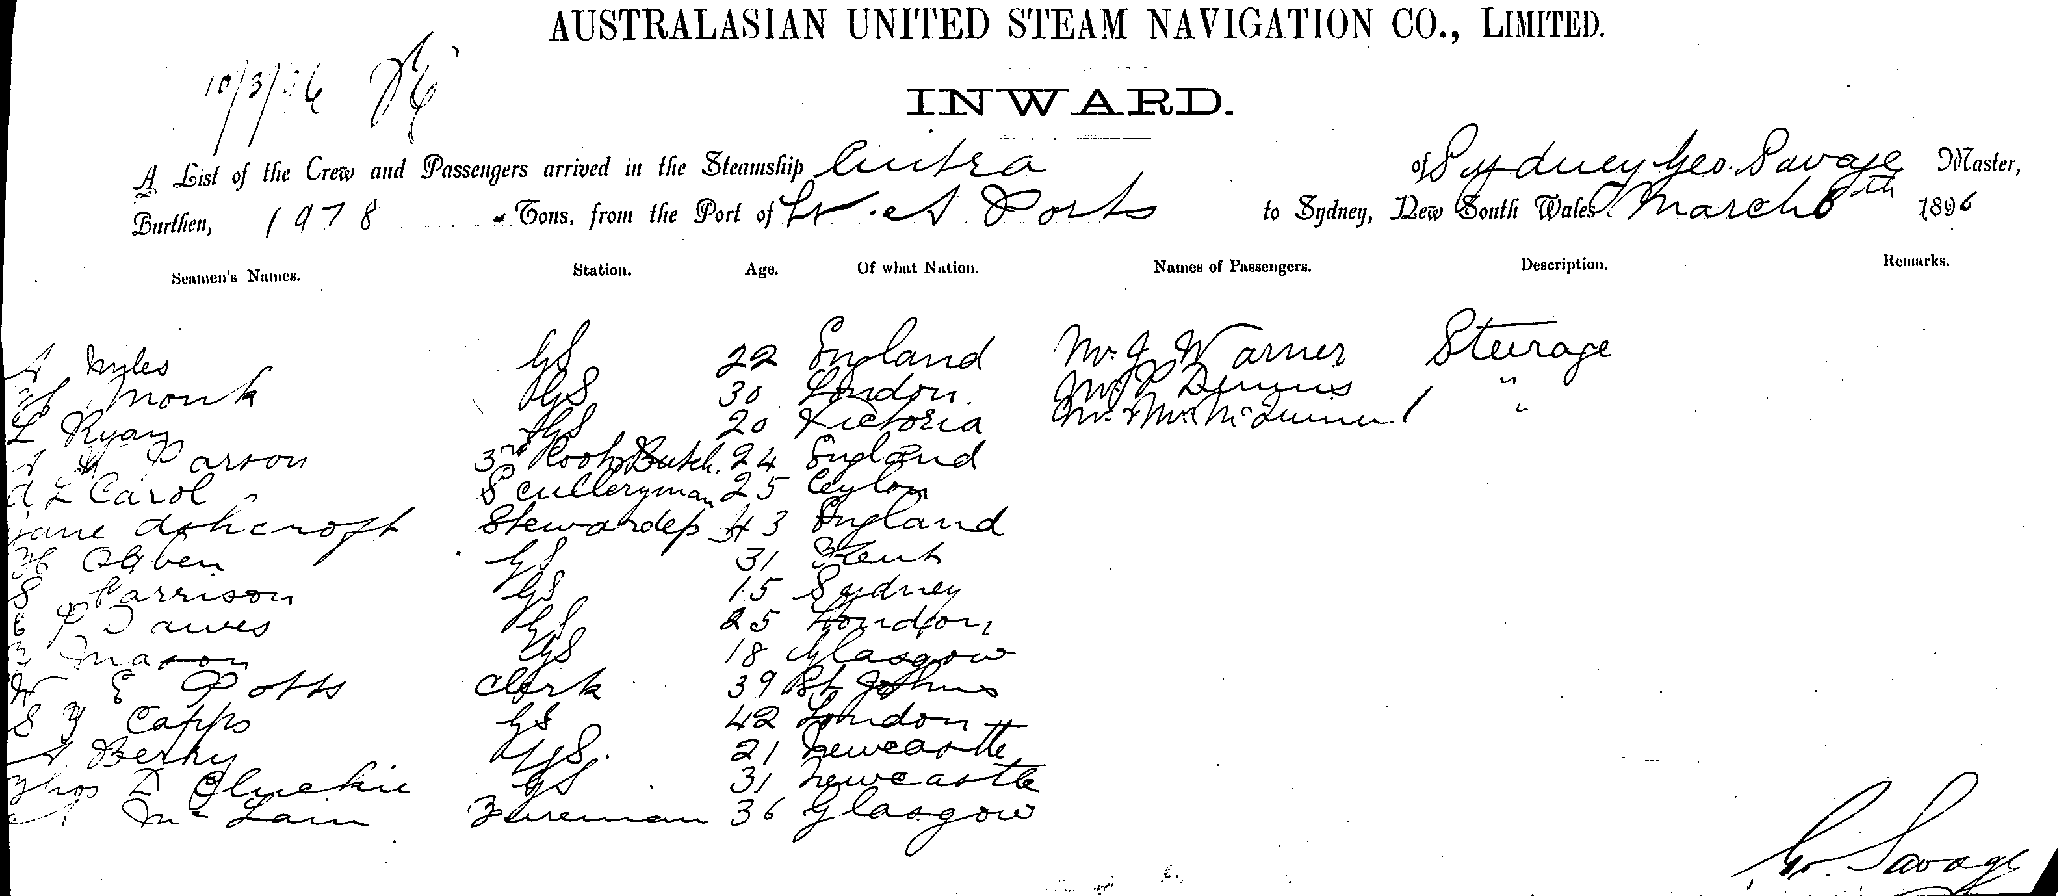 AUSTRALASIAN UNITED STEAM NAVIGATION CO., LIMITED.
10/3/96
INWARD.
A List of the Crew and Passengers arrived in the Steamship of Sydney Geo. Savage Master,
Burthen, 1978 Tons, from the Port of W.A Ports to Sydney, New South Wales March 8th 1896
Seamen's Names. Station. Age. Of what Nation. Names of Passengers. Description. Remarks.
A Myles GS 22 England Mr. J Warner Steerage
Monk GS 30 London. Mr P Dennis "
L Ryan GS 20 Victoria Mr. & Mrs. "
A Parson 3rd Cook & Butch. 24 England
A L Carol Sculleryman 25 Ceylon
Jane Ashcroft Stewardess 43 England
H GS 31 Kent
S Harrison GS 15 Sydney
C P Dawes GS 25 London
Mason GS 18 Glasgow
W E Potts Clerk 39 St Johns
S Y Capps GS 42 London
A Berry GS. 21 Newcastle
Thos D Cluckie GS 31 Newcastle
Mc Lain Fireman 36 Glasgow
Geo. Savage